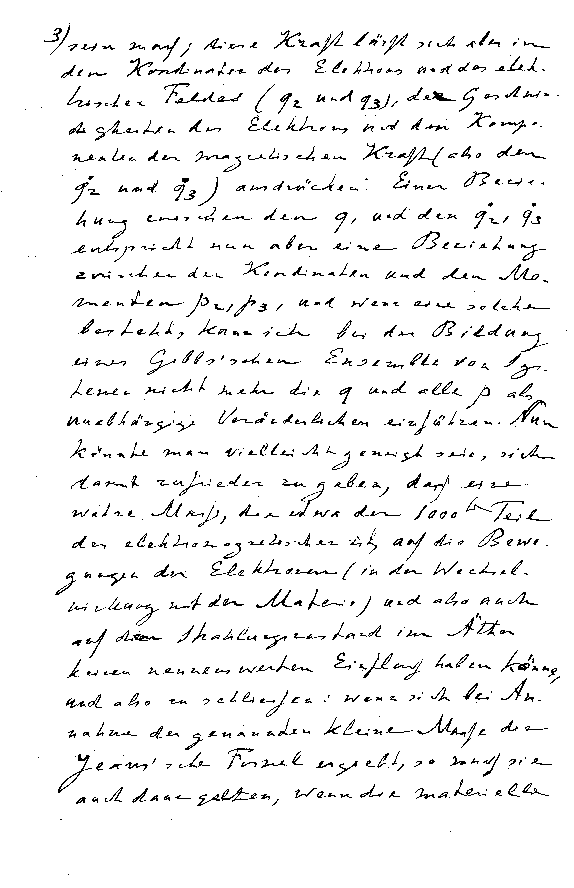 3) sein muss; diese Kraft lässt sich aber in
den Koordinaten des Elektrons und des elek-
trischen Feldes (q2 und q3), der Geschwin-
digkeiten des Elektrons und den Kompo-
nenten der magnetischen Kraft (also den
q̇2 und q̇3) ausdrücken. Einer Bezie-
hung zwischen den q, und den q̇2, q̇3
entspricht nun aber eine Beziehung
zwischen den Koordinaten und den Mo-
menten p2, p3, und wenn eine solche
besteht, kann ich bei der Bildung
eines Gibbs'schen Ensembles von Sys-
temen nicht mehr die q und alle p als
unabhängige Veränderlichen einführen. Nun
könnte man vielleicht geneigt sein, sich
damit zufrieden zu geben, dass eine
wahre Masse, die etwa der 1000te Teil
der elektromagnetischen ist, auf die Bewe-
gungen der Elektronen (in der Wechsel-
wirkung mit der Materie) und also auch
auf den Strahlungszustand im Äther
keinen nennenswerten Einfluss haben könne,
und also zu schliessen: wenn sich bei An-
nahme der genannten kleinen Masse die
Jeans'sche Formel ergiebt, so muss sie
auch dann gelten, wenn die materielle